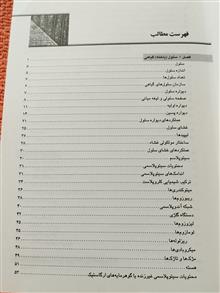 فهرست مطالب
فصل ۱- سلول (یاخته) گیاهی
سلول
اندازه سلول
تعداد سلول‌ها
سازمان سلول‌های گیاهی
دیواره سلول
صفحه سلولی و تیغه میانی
دیواره اولیه
دیواره پسین
عملکردهای دیواره سلول
غشای سلول
لیپیدها
ساختار مولکولی غشاء
عملکردهای غشای سلول
سیتوپلاسم
محتویات سیتوپلاسمی
اندامک‌های سیتوپلاسمی
ترکیب شیمیایی کلروپلاست
میتوکندری‌ها
ریبوزوم‌ها
شبکه آندوپلاسمی
دستگاه گلژی
لیزوزوم‌ها
لومازوم‌ها
ریزلوله‌ها
میکروبادی‌ها
مژک‌ها و تاژک‌ها
هسته
محتویات سیتوپلاسمی غیرزنده یا گوهرمایه‌های ارگاستیک